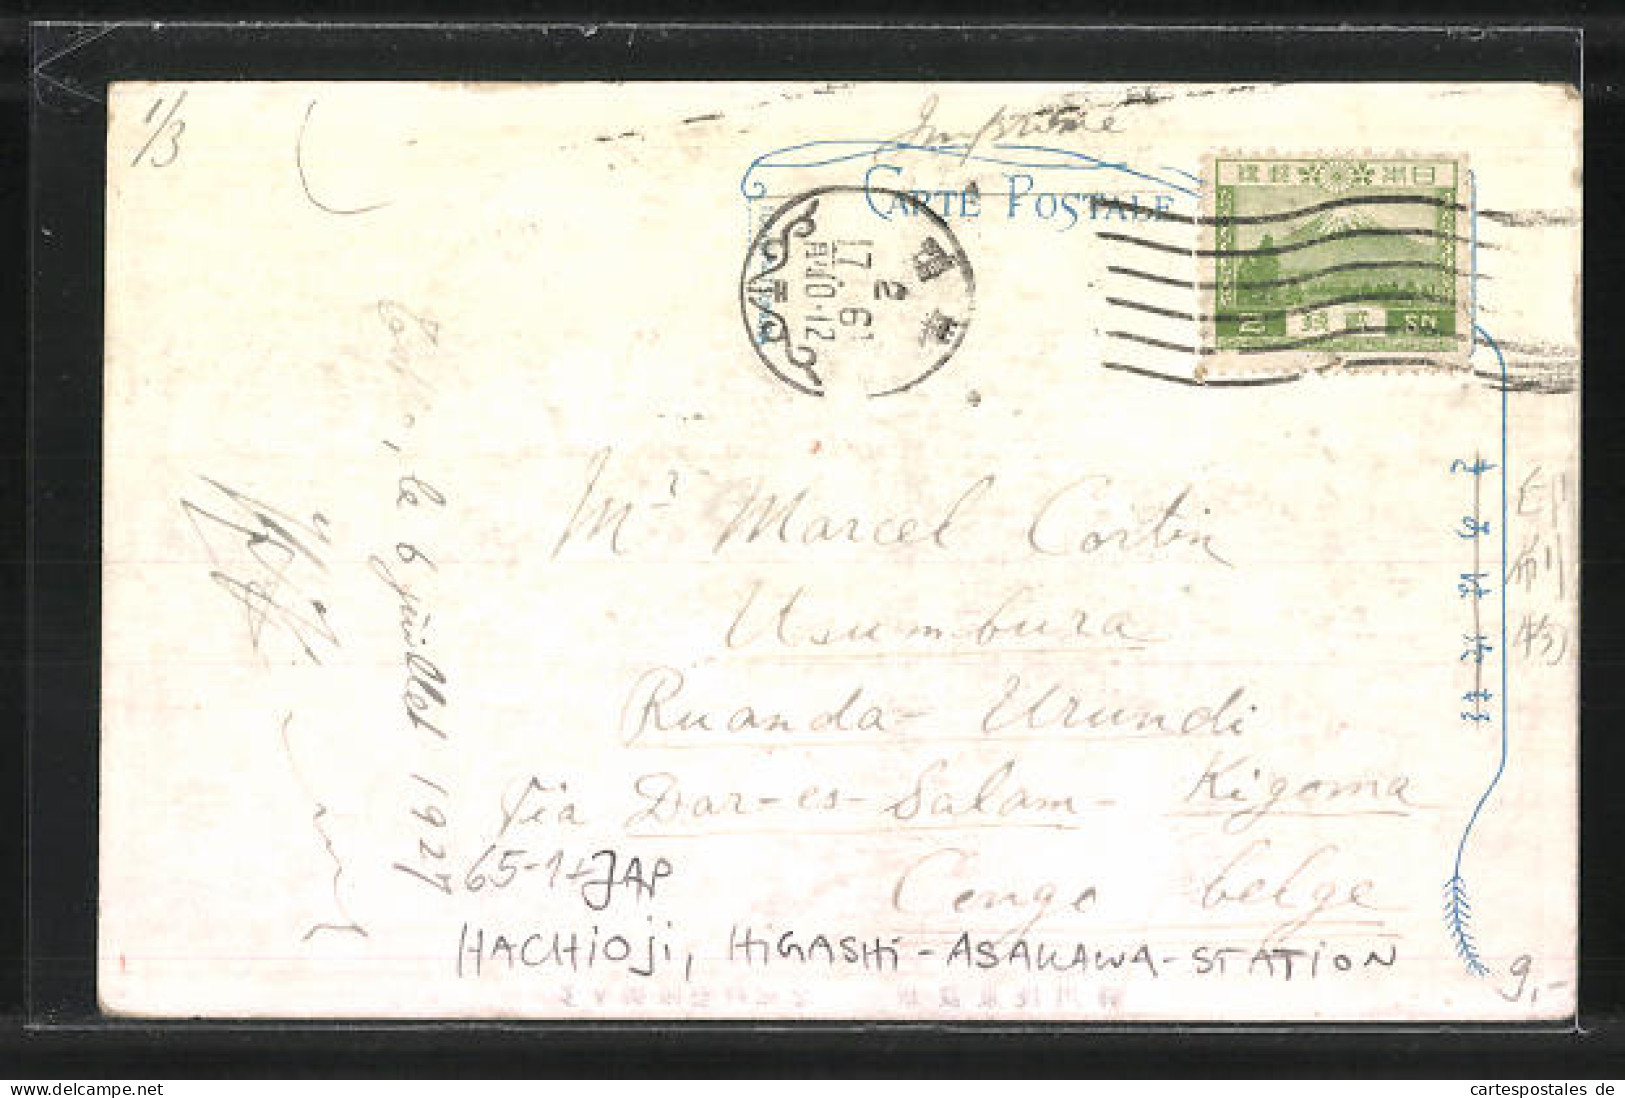 1/3
Imprimé
CARTE POSTALE
日本郵便
2 銭 貳 SN
2
17.6
10-12
, le 6 juillet 1927
Mr Marcel Cortin
Usumbura
Ruanda-Urundi
Via Dar-es-Salam- Kigoma
Congo belge
印刷物
65-1+JAP
HACHIOJI, HIGASHI-ASAKAWA-STATION
9,-
cartespostales de